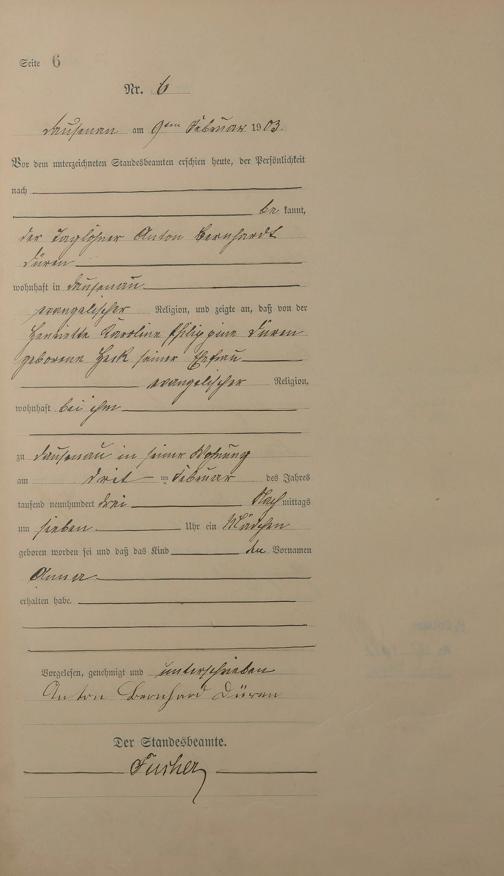 Seite 6
Nr. 6
Dausenau am 9ten Februar 1903.
Vor dem unterzeichneten Standesbeamten erschien heute, der Persönlichkeit
nach
be kannt,
der Taglöhner Anton Bernhardt
Düren
wohnhaft in Dausenau
evangelischer Religion, und zeigte an, daß von der
Henriette Karoline Philippine Düren
geborene Heck seiner Ehefrau
evangelischer Religion,
wohnhaft bei ihm
zu Dausenau in seiner Wohnung
am drit Februar des Jahres
tausend neunhundert drei Nach mittags
um sieben Uhr ein Mädchen
geboren worden sei und daß das Kind den Vornamen
Anna
erhalten habe.
Vorgelesen, genehmigt und unterschrieben
Anton Bernhard Düren
Der Standesbeamte.